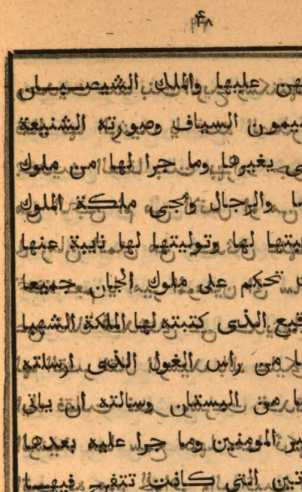 ٤٨
عليها والملك الشيصبان
ميمون السياف وصورته الشنيعة
يغيرها وما جرا لها من ملوك
والرجال ومجى ملكة الملوك
لها وتوليتها لها نايبة عنها
تحكم على ملوك الجان جميعا
الذى كتبته لها الملكة الشهبا
من راس الغول الذى ارسلته
من البستان وسالته ان ياتى
المومنين وما جرا عليه بعدها
التى كانت تتفرج فيهم